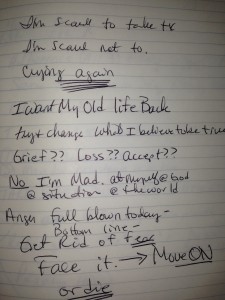 I'm scared to take tx
I'm scared not to.
Crying again
I want My Old life Back
try + change what I believe take
Grief?? Loss?? accept??
No I'm Mad. at myself @ God
@ situation @ the world
Anger full blown today -
Bottom line -
Get Rid of fear
Face it. → Move ON
or die